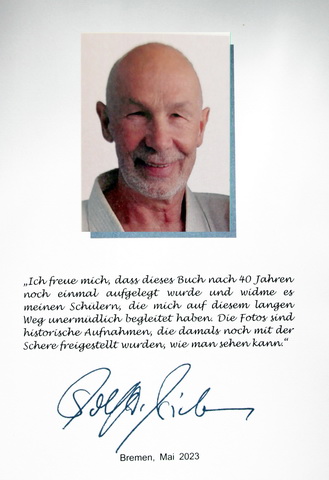 „Ich freue mich, dass dieses Buch nach 40 Jahren
noch einmal aufgelegt wurde und widme es
meinen Schülern, die mich auf diesem langen
Weg unermüdlich begleitet haben. Die Fotos sind
historische Aufnahmen, die damals noch mit der
Schere freigestellt wurden, wie man sehen kann.“
Bremen, Mai 2023